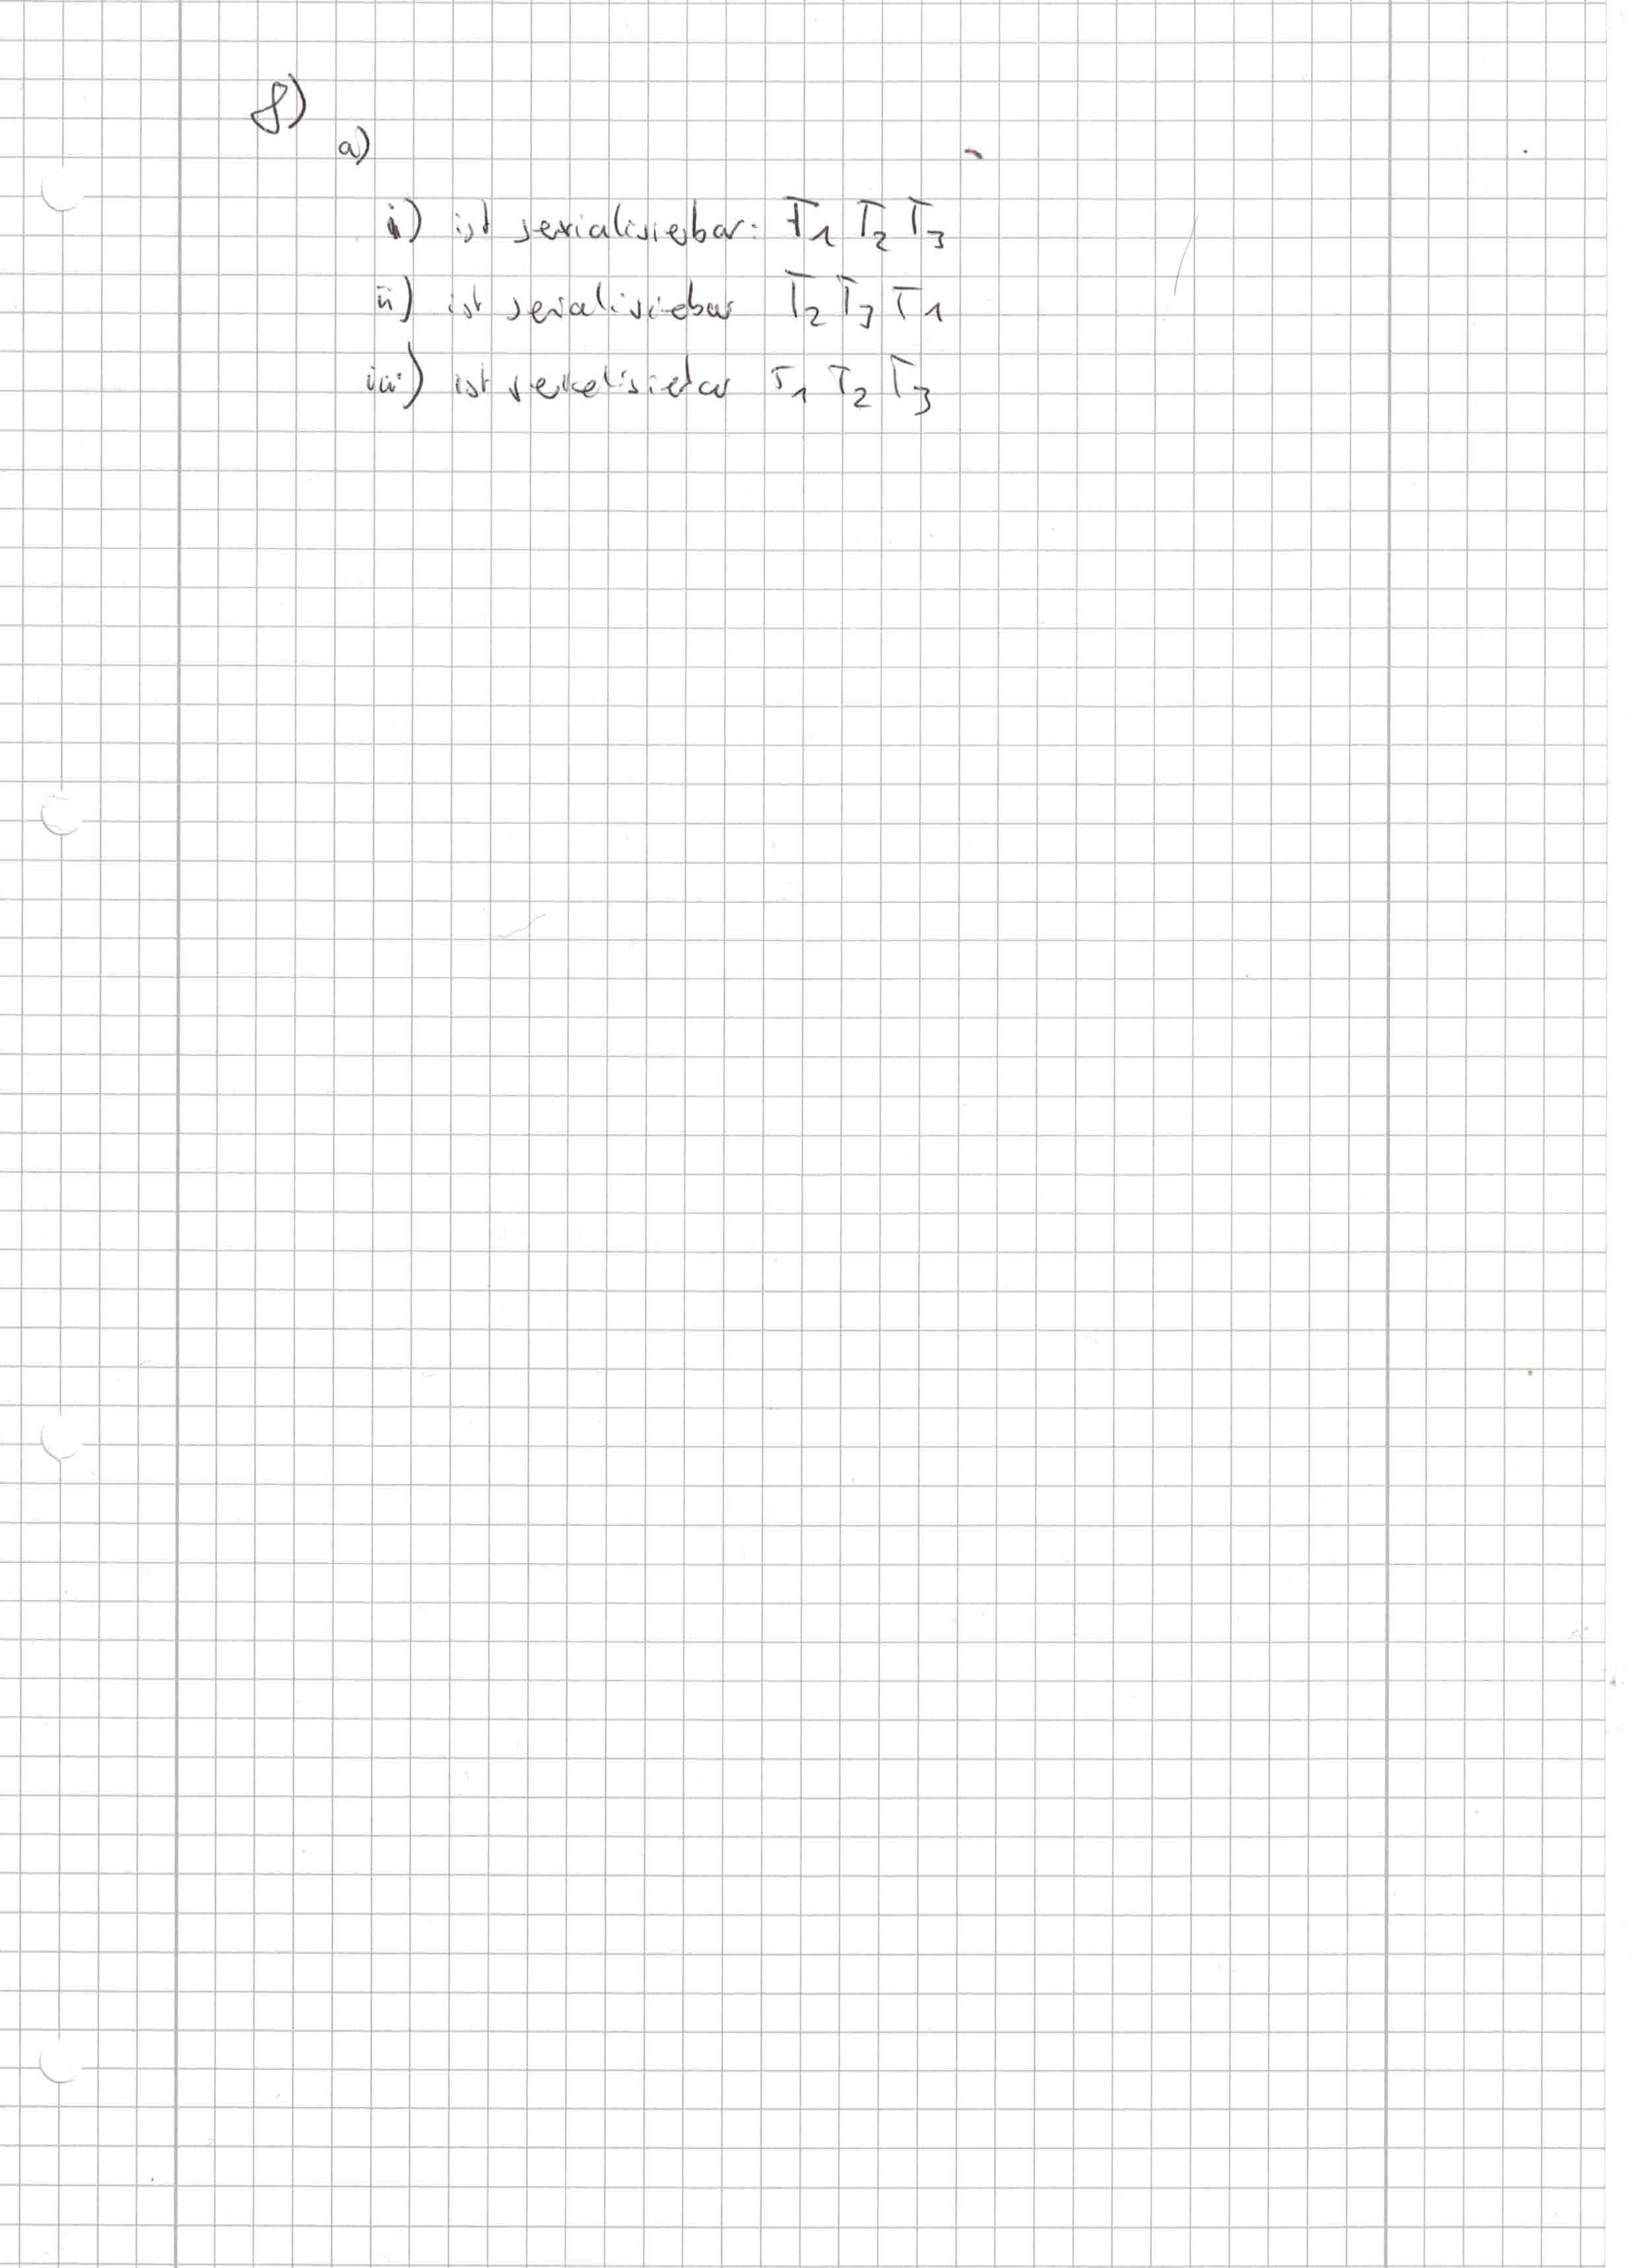 8)
a)
i) ist serialisierbar: T1 T2 T3
ii) ist serialisiebar T2 T3 T1
iii) ist serialisiebar T1 T2 T3